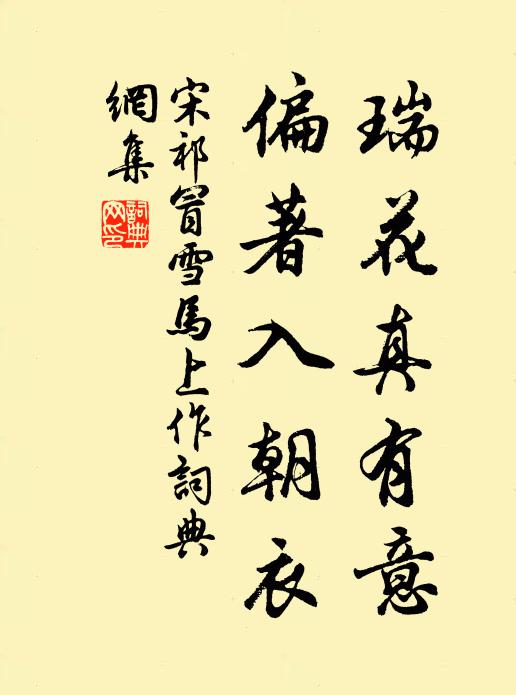 瑞花真有意
偏著入朝衣
宋祁冒雪馬上作詞典
網集
詞典網印